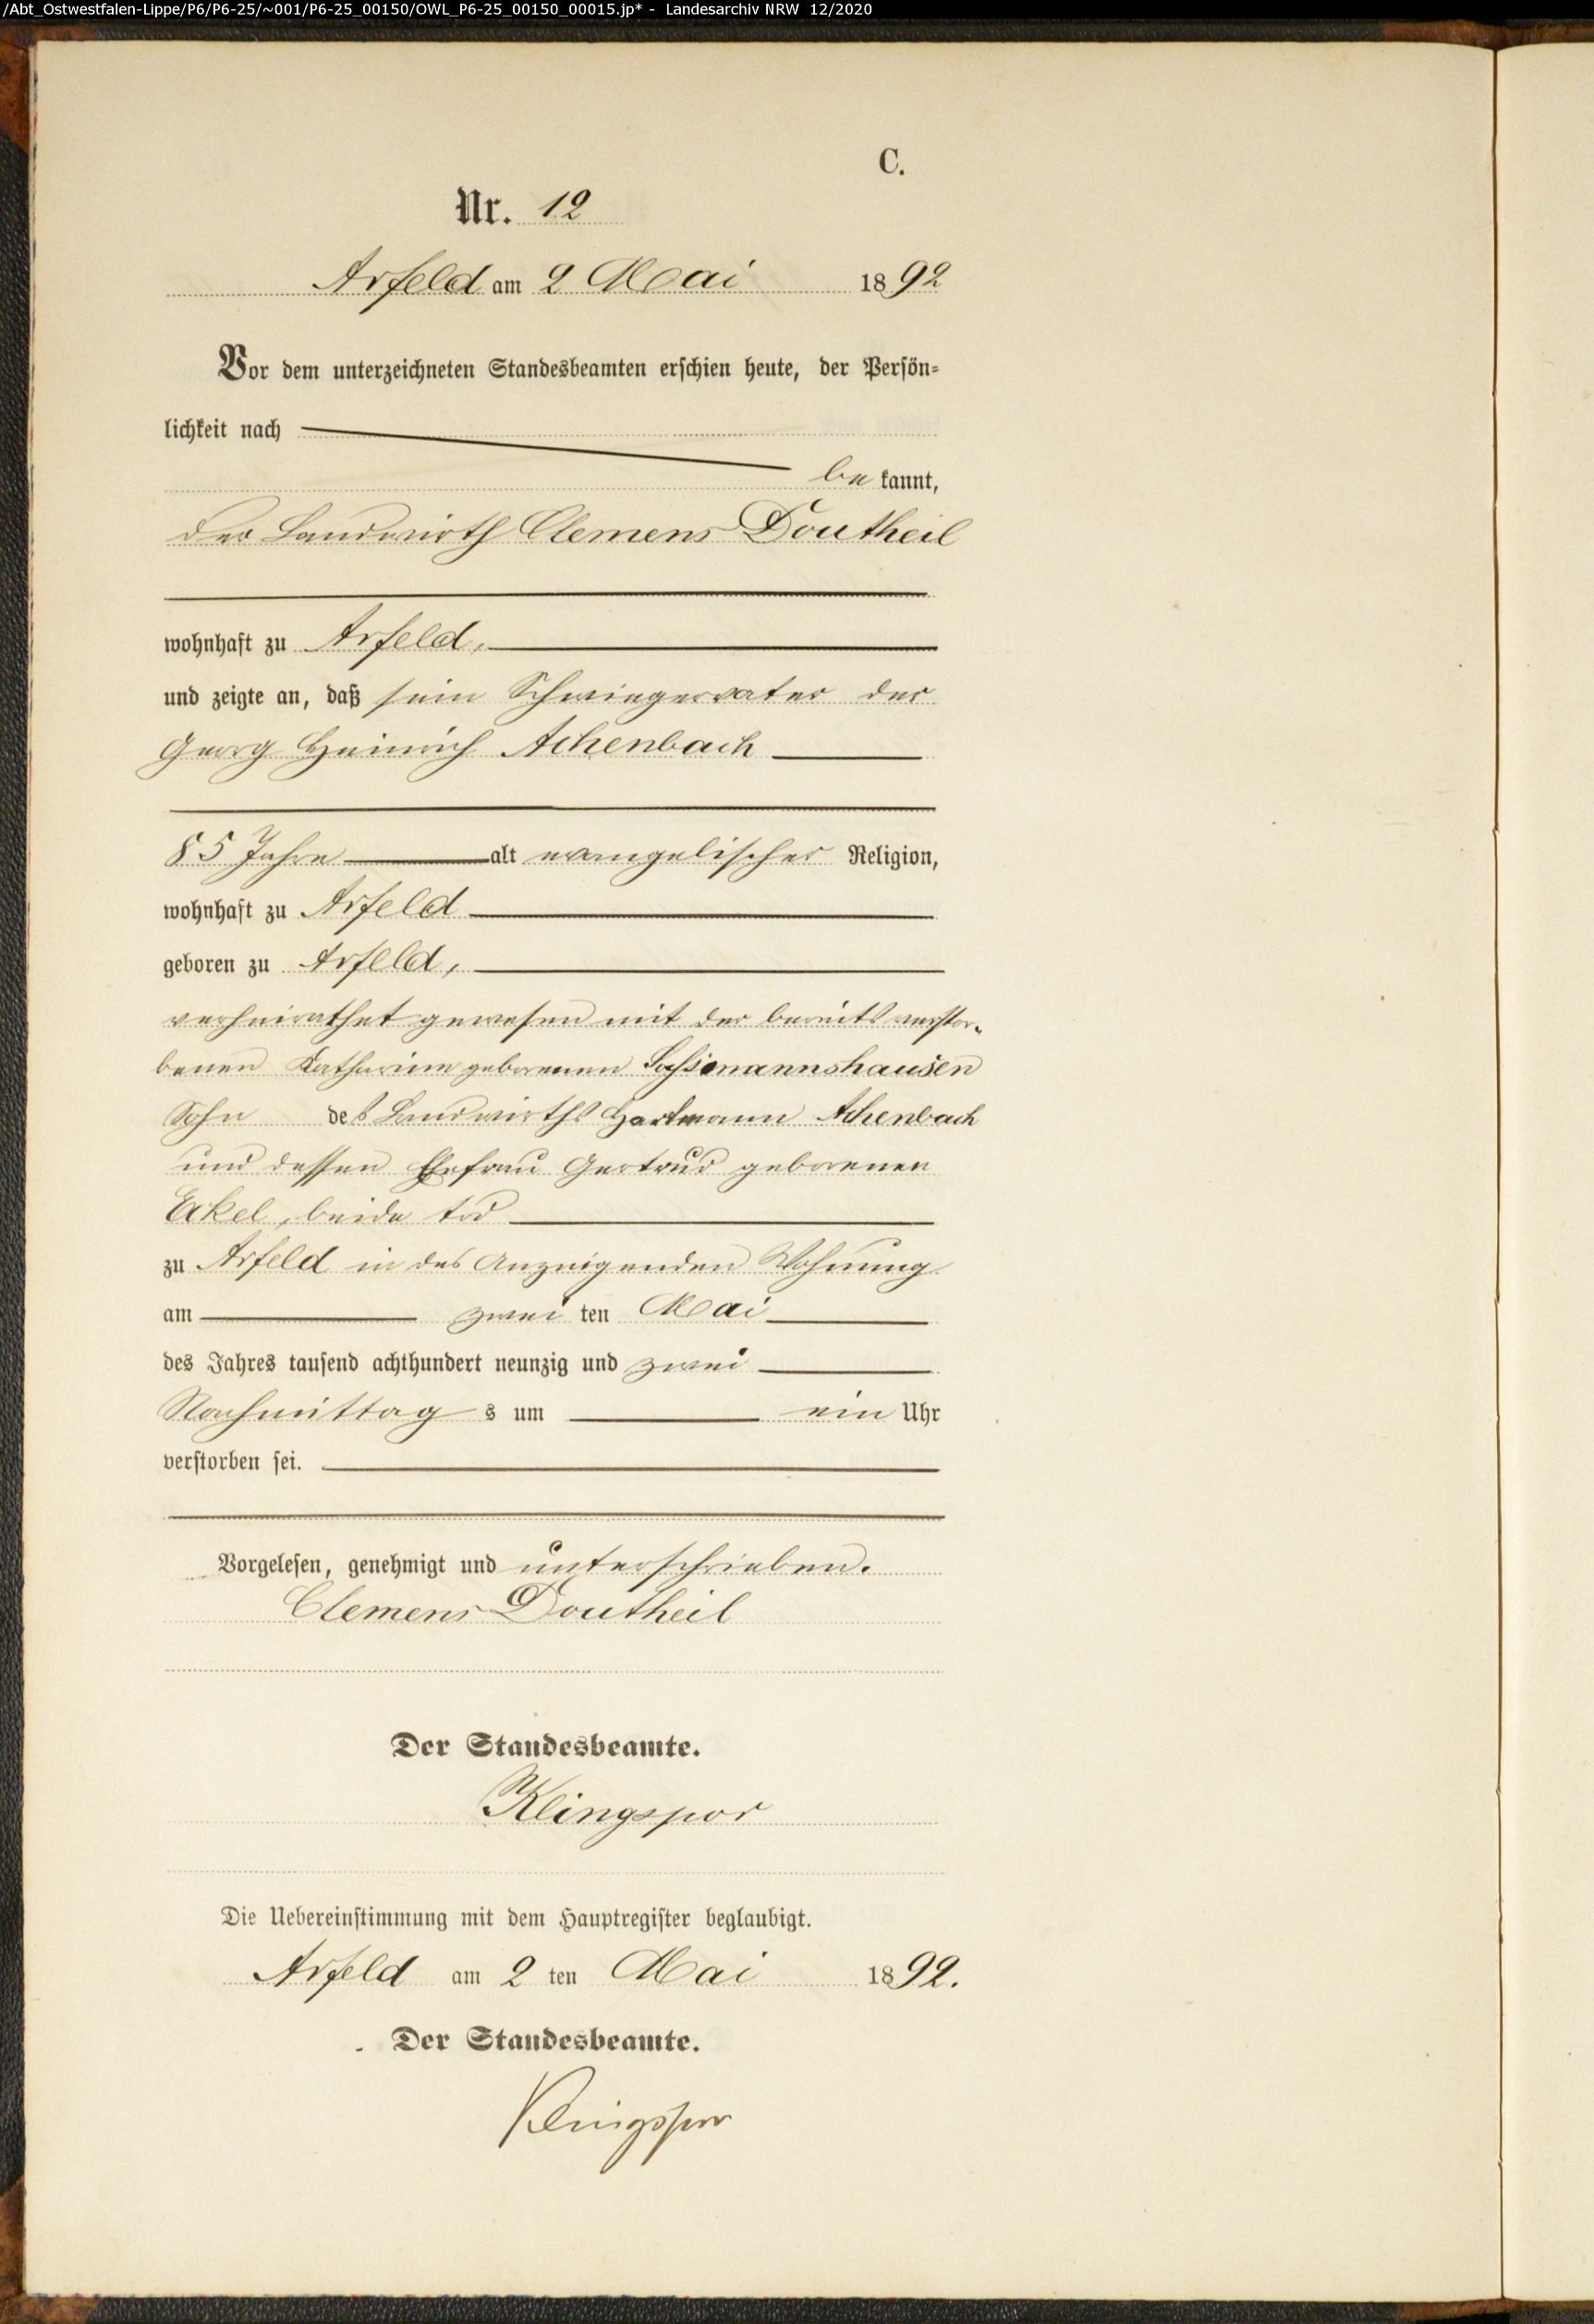 /Abt_Ostwestfalen-Lippe/P6/P6-25/~001/P6-25_00150/OWL_P6-25_00150_00015.jp* - Landesarchiv NRW 12/2020
C.
Nr. 12
Arfeld am 2 Mai 1892
Vor dem unterzeichneten Standesbeamten erschien heute, der Persön-
lichkeit nach
be kannt,
der Landwirth Clemens Doutheil
wohnhaft zu Arfeld,
und zeigte an, daß sein Schwiegervater der
Georg Heinrich Achenbach
85 Jahre alt evangelischer Religion,
wohnhaft zu Arfeld
geboren zu Arfeld,
verheirathet gewesen mit der bereits verstor-
benen Katharine geborenen Sassmannshausen
Sohn des Landwirths Hartmann Achenbach
und dessen Ehefrau Gertrud geborenen
Eckel, beide tod
zu Arfeld in des Anzeigenden Wohnung
am zwei ten Mai
des Jahres tausend achthundert neunzig und zwei
Nachmittag s um ein Uhr
verstorben sei.
Vorgelesen, genehmigt und unterschrieben.
Clemens Doutheil
Der Standesbeamte.
Klingspor
Die Uebereinstimmung mit dem Hauptregister beglaubigt.
Arfeld am 2 ten Mai 1892.
Der Standesbeamte.
Klingspor